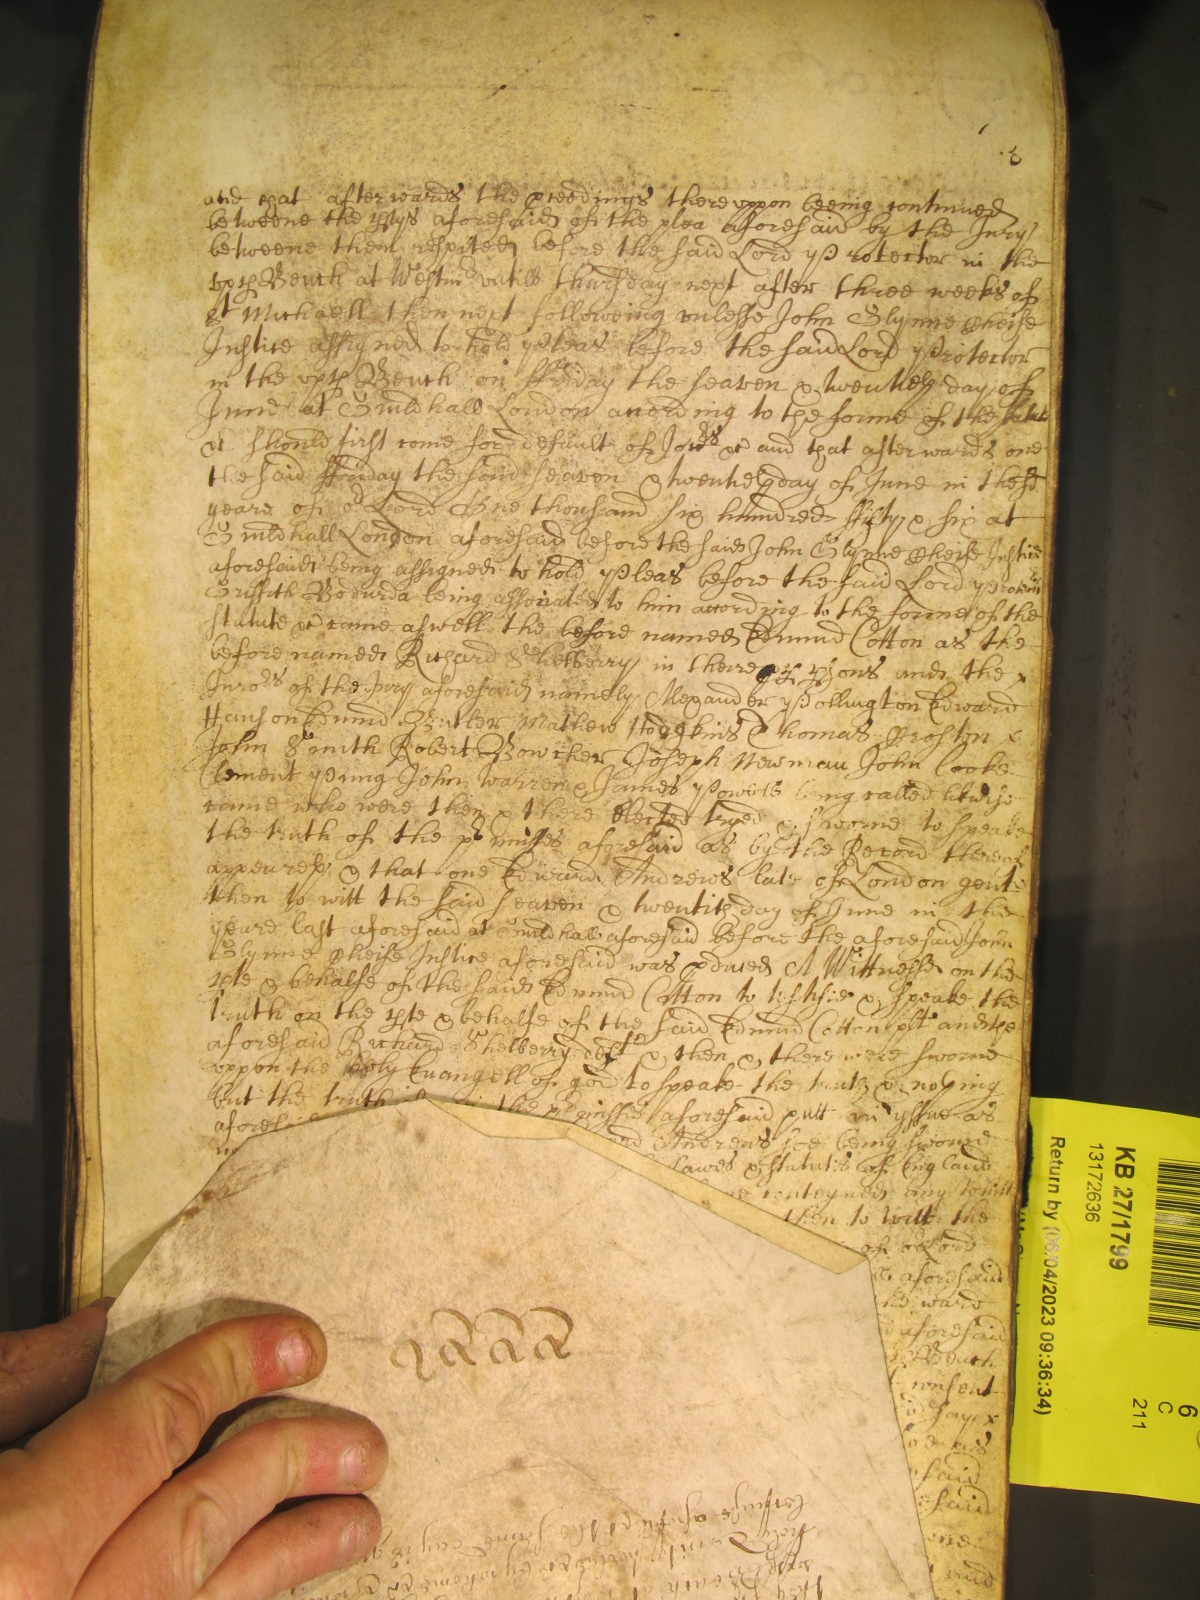 8
and that afterwards the pceedings thereuppon beeing continued
betweene the ptyes aforesaid of the plea aforesaid by the Jury
betweene them respited before the said Lord Protector in the
upp Bench at Westm untill thursday next after three weeks of
St Michaell then next following unlesse John Glynne Cheife
Justice assigned to hold Pleas before the said Lord Protector
in the upp Bench on ffriday the seaven & twentieth day of
June at Guildhall London according to the forme of the statute
&c should first come for default of Jurors &c and that afterwards one
the said ffriday the said seaven & twentieth day of June in the
yeare of or Lord One thousand six hundred fifty & six at
Guildhall London aforesaid before the said John Glynne Cheife Justice
aforesaid being assigned to hold Pleas before the said Lord Protector
Griffith Bodurda being associated to him according to the forme of the
statute &c came aswell the before named Edmund Cotton as the
before named Richard Shelberry in there pp psons and the x
Jurors of the Jury aforesaid namely Alexander Pollington Edward
Hanson Edmund Butler Mathew Hodgkins Thomas Proston x
John Smith Robert Bowcher Joseph Newman John Cooke
Clement Pung John Warren & James Powels being called likewise
came who were then & there elected tryed & sworne to speake
the truth of the pmisses aforesaid as by the Record thereof
appeareth & that one Edward Andrews late of London gent
then to witt the said seaven & twentith day of June in the
yeare last aforesaid at Guildhall aforesaid before the aforesaid John
Glynne Cheife Justice aforesaid was pduced A Wittnesse on the
pte & behalfe of the said Edmund Cotton to testifie & speake the
truth on the pte & behalfe of the said Edmund Cotton plt and the
aforesaid Richard Shelberry deft & then & there were sworne
uppon the holy Evangell of god to speake the truth & nothing
but the truth in the pmisses aforesaid putt in yssue as
aforesaid Andrews soe being sworne
lawes & statutes of England
conteyned any
then to witt the
of or Lord
aforesaid
the ward
aforesaid
Bench
consent
say x
as
said
said
one
and
KB 27/1799
13172636
Return by (06/04/2023 09:36:34)
6
C
211